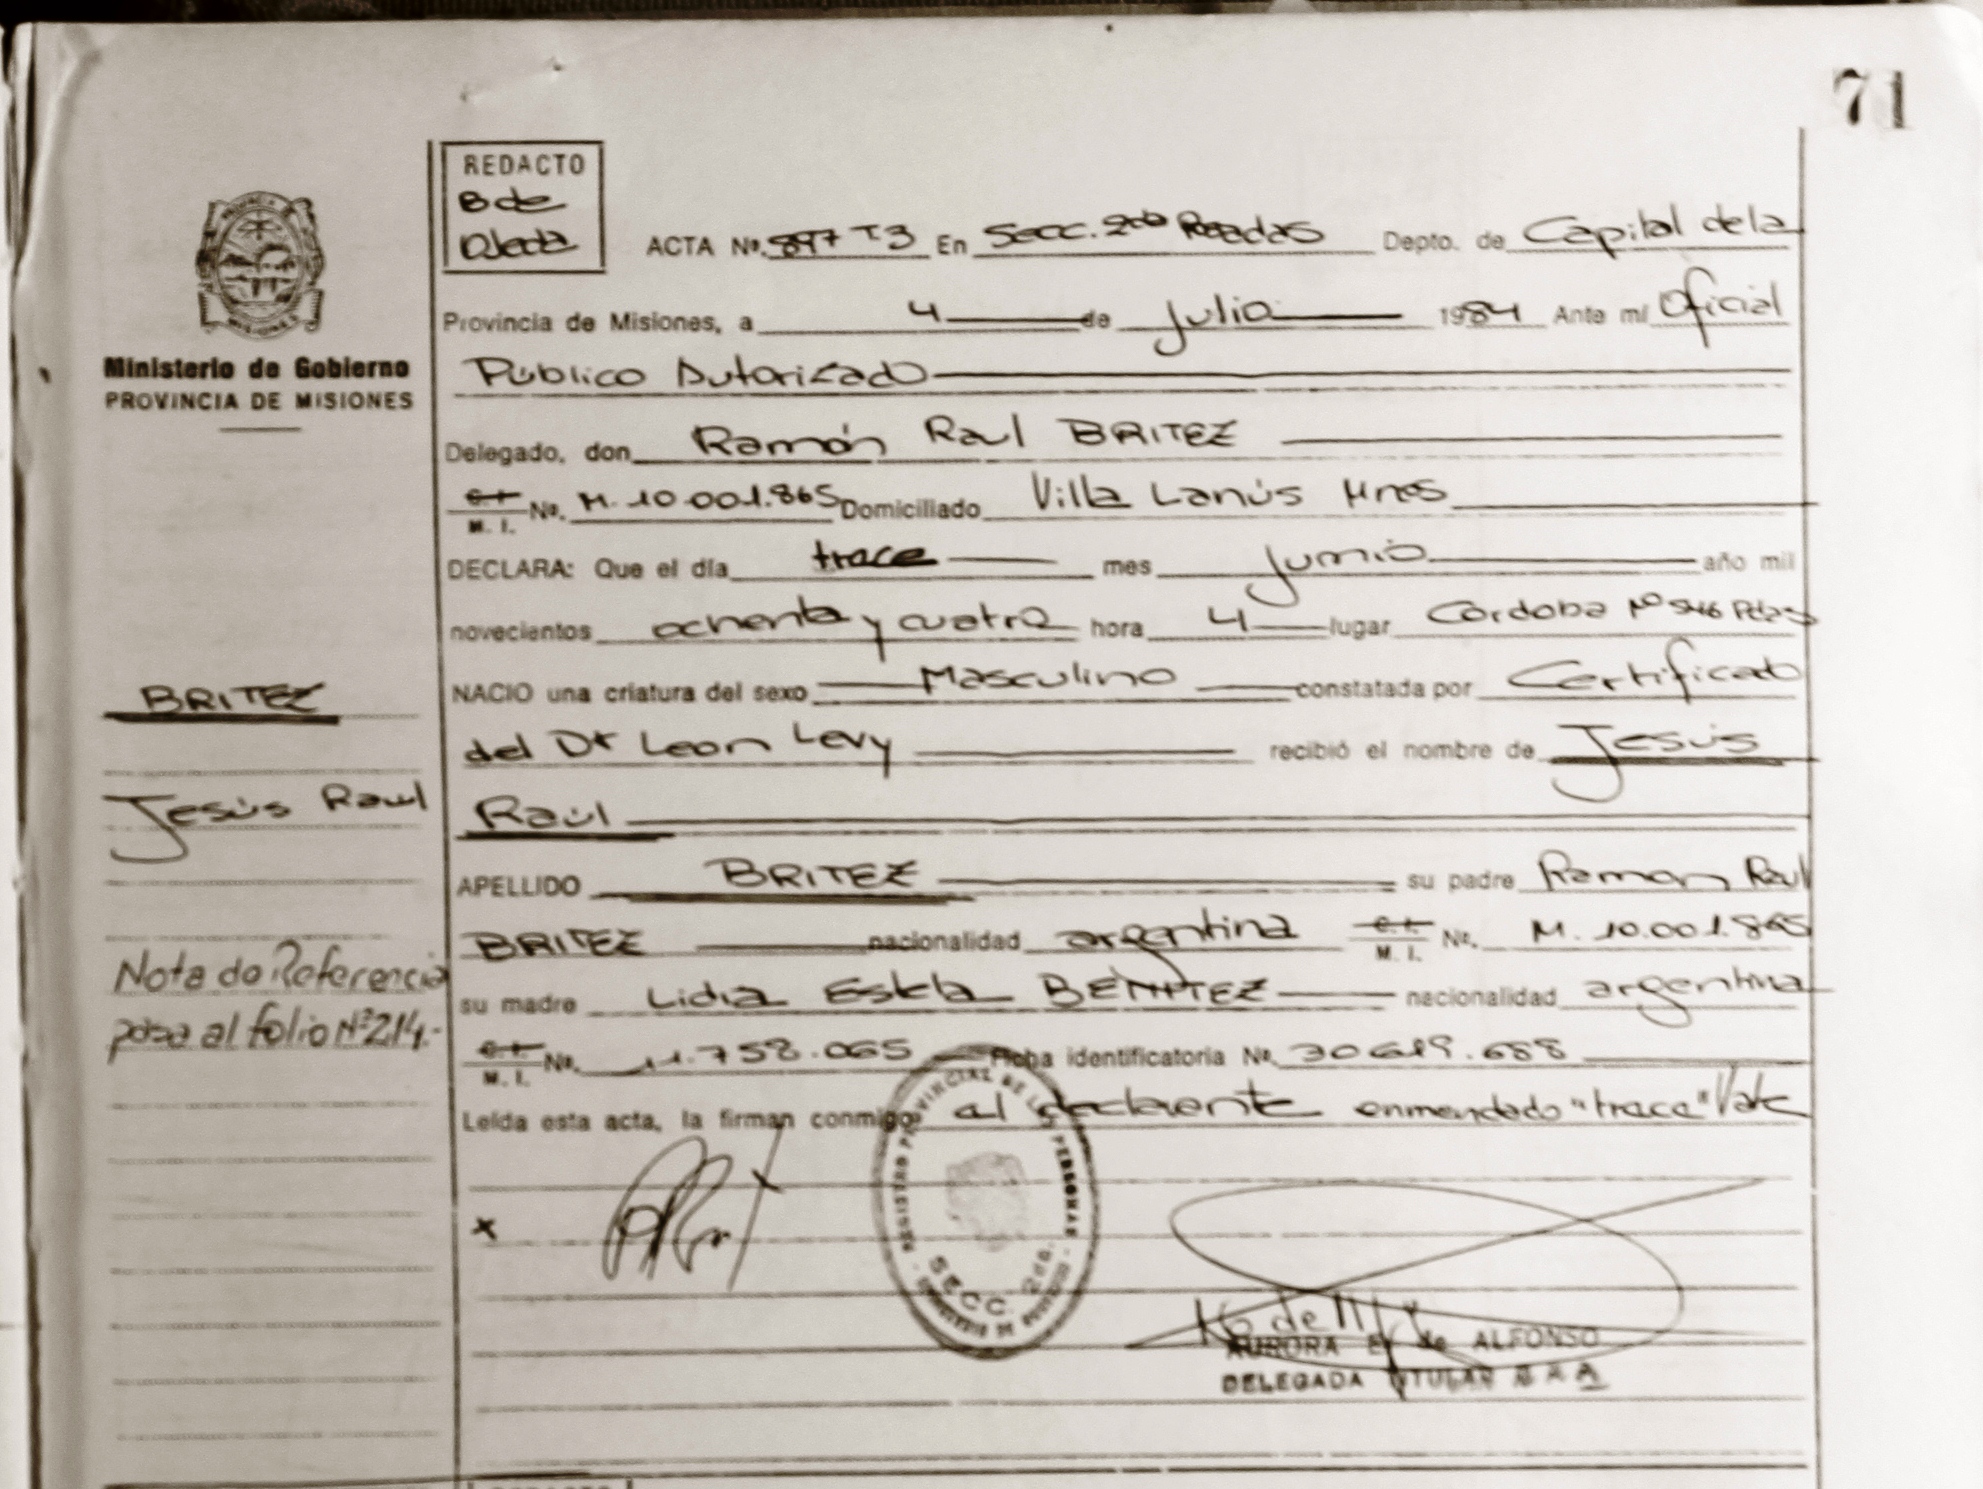 71
REDACTO
B de
Ojeda
ACTA No. 897 T3 En Secc. 2da Posadas Depto. de Capital de la
Provincia de Misiones, a 4 de Julio 1984 Ante mí Oficial
Público Autorizado
Ministerio de Gobierno
PROVINCIA DE MISIONES
Delegado, don Ramón Raul BRITEZ
C.I. / M. I. No. M. 10.001.865 Domiciliado Villa Lanús Mnes
DECLARA: Que el día trece mes Junio año mil
novecientos ochenta y cuatro hora 4 lugar Córdoba Nº Pdas
NACIO una criatura del sexo Masculino constatada por Certificado
del Dr Leon Levy recibió el nombre de Jesús
Raúl
BRITEZ
Jesús Raul
APELLIDO BRITEZ su padre Ramon Raul
BRITEZ nacionalidad argentina C.I. / M. I. No. M. 10.001.865
su madre Lidia Estela BENITEZ nacionalidad argentina
C.I. / M. I. No. 11.758.065 Ficha identificatoria No. 30619.688
Leída esta acta, la firman conmigo, el declarante enmendado "trece" Vale
Nota de Referencia
pasa al folio Nº 214.-
x
REGISTRO PROVINCIAL DE LAS PERSONAS
SECC. 2da.
AURORA E. de ALFONSO
DELEGADA TITULAR